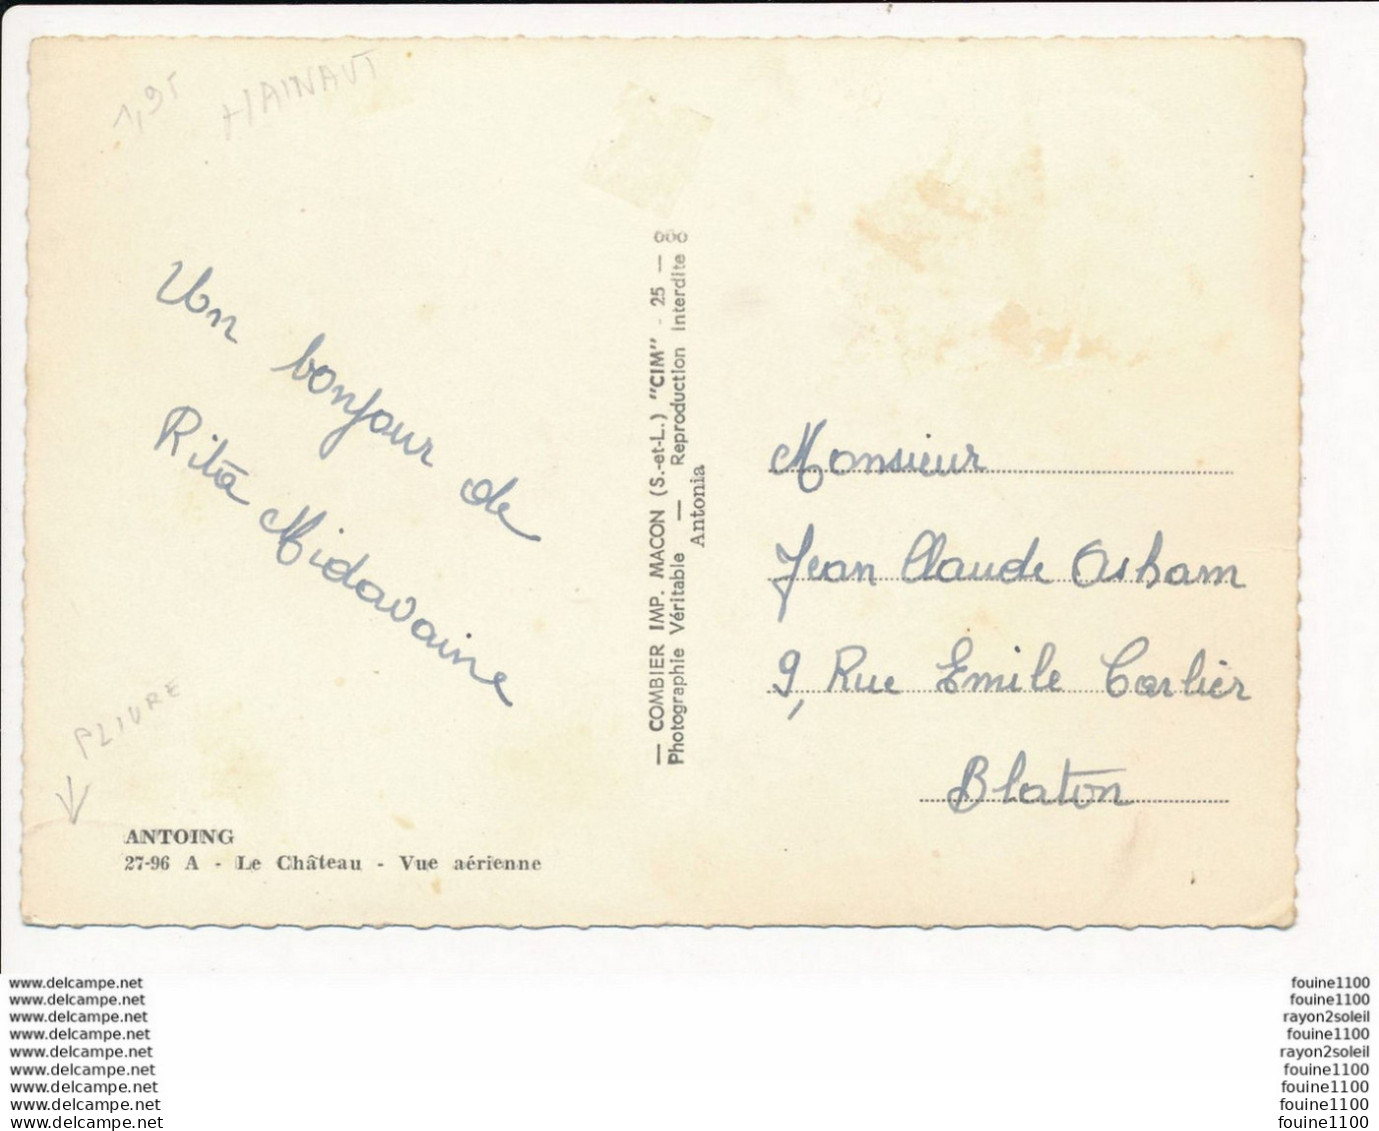 1,95 HAINAUT
Un bonjour de
Rita Midavaine
PLIURE
ANTOING
27-96 A - Le Château - Vue aérienne
— COMBIER IMP. MACON (S.-et-L.) "CIM" - 25 — 000
Photographie Véritable — Reproduction Interdite 0
Antonia
Monsieur
Jean Claude Osham
9, Rue Emile Carlier
Blaton
www.delcampe.net
www.delcampe.net
www.delcampe.net
www.delcampe.net
www.delcampe.net
www.delcampe.net
www.delcampe.net
www.delcampe.net
www.delcampe.net
fouine1100
fouine1100
rayon2soleil
fouine1100
rayon2soleil
fouine1100
fouine1100
fouine1100
fouine1100